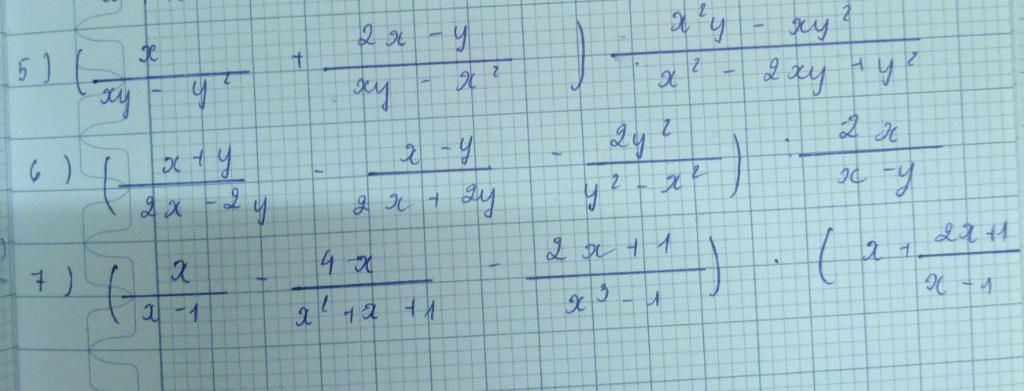 5) ( x / (xy - y²) + (2x - y) / (xy - x²) ) : (x²y - xy²) / (x² - 2xy + y²)
6) ( (x + y) / (2x - 2y) - (x - y) / (2x + 2y) - 2y² / (y² - x²) ) : 2x / (x - y)
7) ( x / (x - 1) - 4x / (x² + x + 1) - (2x + 1) / (x³ - 1) ) · ( x + (2x + 1) / (x - 1)